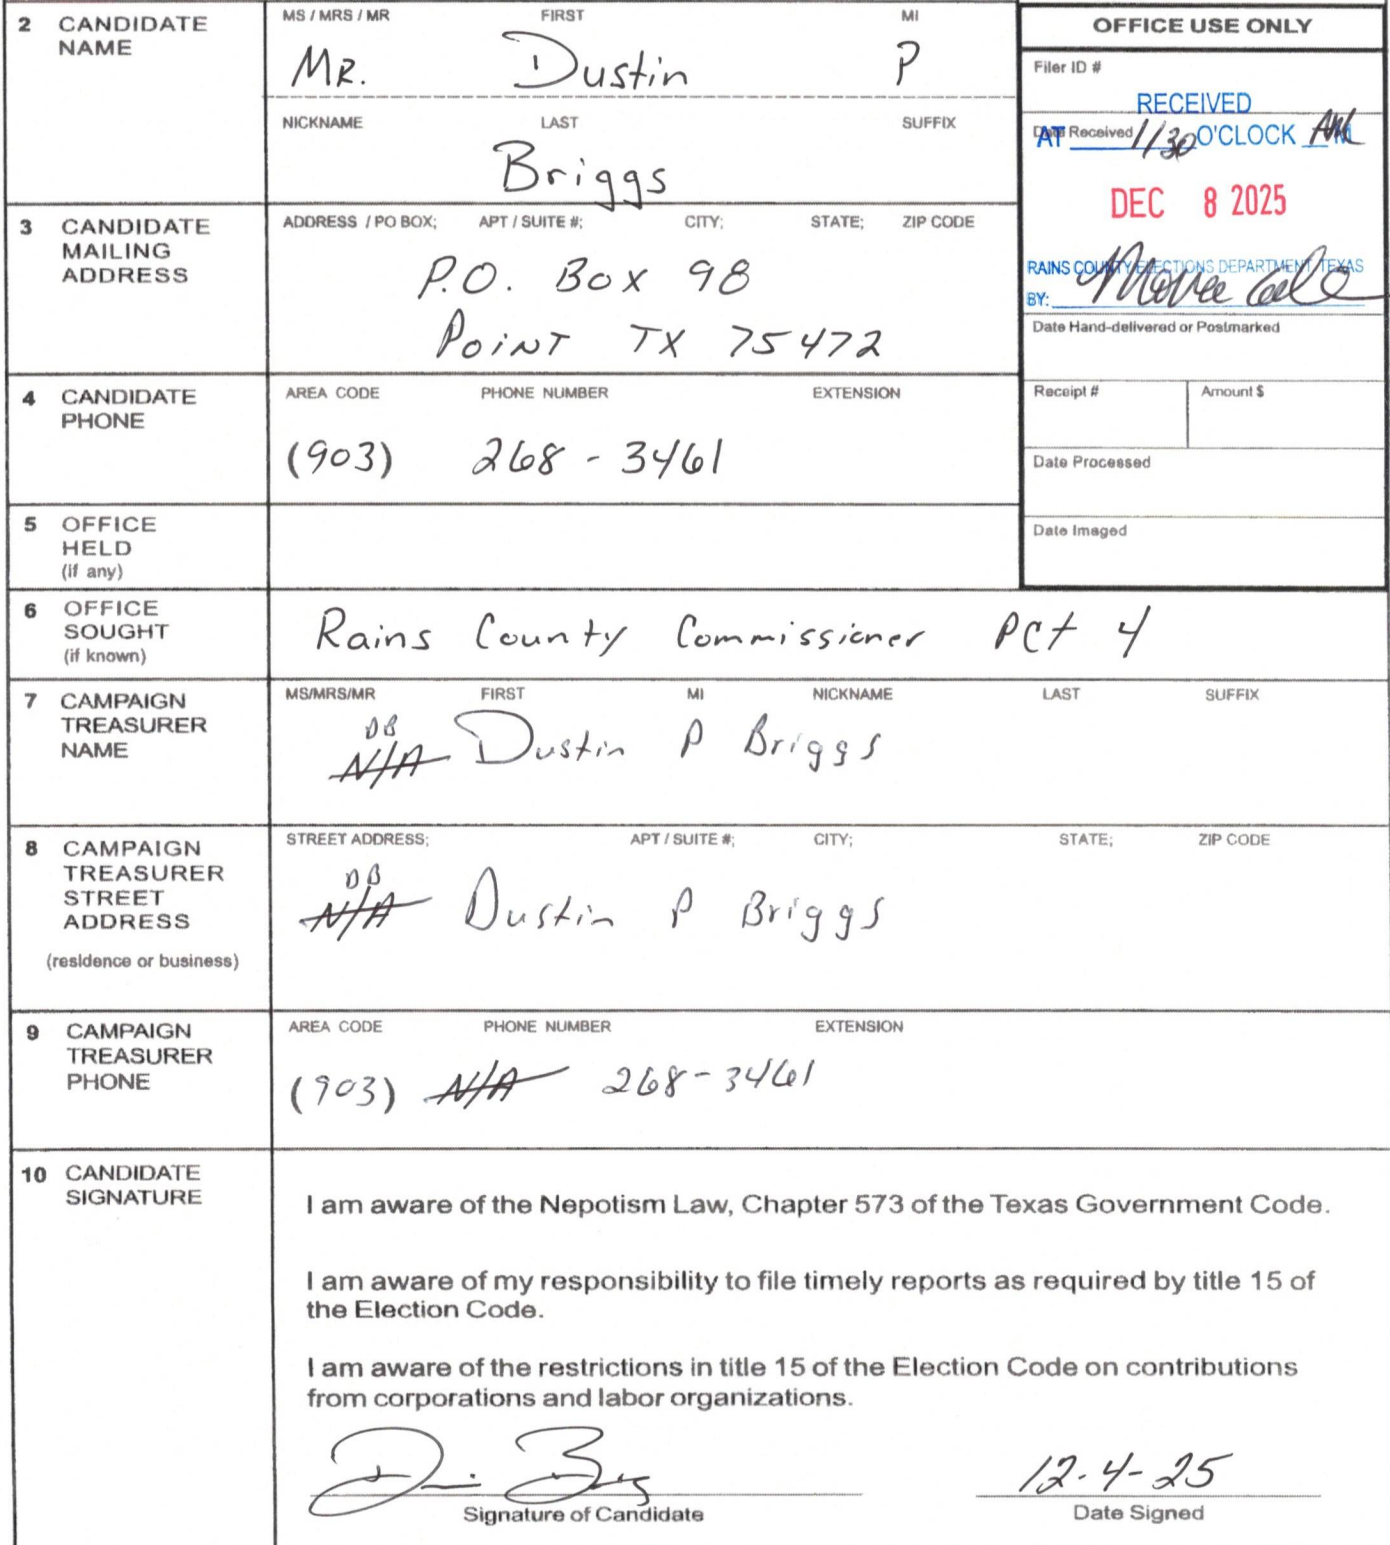 2 CANDIDATE NAME
MS / MRS / MR FIRST MI
Mr. Dustin P
NICKNAME LAST SUFFIX
Briggs
OFFICE USE ONLY
Filer ID #
RECEIVED
Date Received
AT 11:30 O'CLOCK AM
DEC 8 2025
RAINS COUNTY ELECTIONS DEPARTMENT, TEXAS
BY:
Date Hand-delivered or Postmarked
Receipt # Amount $
Date Processed
Date Imaged
3 CANDIDATE MAILING ADDRESS
ADDRESS / PO BOX; APT / SUITE #; CITY; STATE; ZIP CODE
P.O. Box 98
Point TX 75472
4 CANDIDATE PHONE
AREA CODE PHONE NUMBER EXTENSION
(903) 268-3461
5 OFFICE HELD (if any)
6 OFFICE SOUGHT (if known)
Rains County Commissioner PCt 4
7 CAMPAIGN TREASURER NAME
MS/MRS/MR FIRST MI NICKNAME LAST SUFFIX
DB
N/A Dustin P Briggs
8 CAMPAIGN TREASURER STREET ADDRESS (residence or business)
STREET ADDRESS; APT / SUITE #; CITY; STATE; ZIP CODE
DB
N/A Dustin P Briggs
9 CAMPAIGN TREASURER PHONE
AREA CODE PHONE NUMBER EXTENSION
(903) N/A 268-3461
10 CANDIDATE SIGNATURE
I am aware of the Nepotism Law, Chapter 573 of the Texas Government Code.
I am aware of my responsibility to file timely reports as required by title 15 of
the Election Code.
I am aware of the restrictions in title 15 of the Election Code on contributions
from corporations and labor organizations.
12-4-25
Signature of Candidate Date Signed